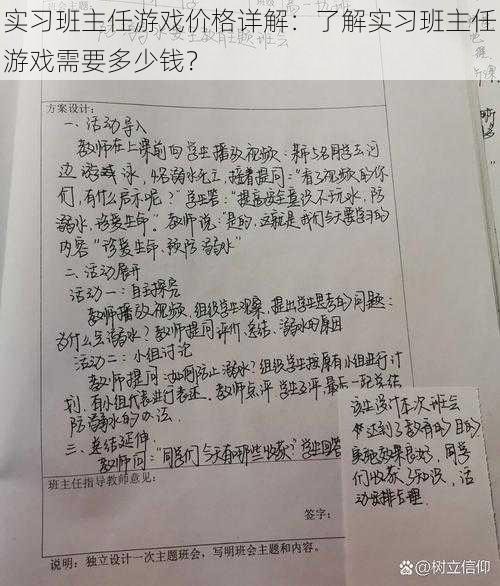 实习班主任游戏价格详解：了解实习班主任
游戏需要多少钱？
方案设计：
一、活动导入
教师在上课前向学生播放视频：新5名同学去河
边游泳，4名溺水死亡，接着提问：“看了视频的你
们，有什么启示呢？”学生答：“提高安全意识不玩水，防
溺水，珍爱生命。”教师说：“是的，这就是我们今天要学习的
内容“珍爱生命，预防溺水”
二、活动展开
活动一：自主探究
教师播放视频，组织学生观察，提出学生思考的问题：
为什么会溺水？教师提问评价，总结，溺水的原因
活动二：小组讨论
教师提问：如何防止溺水？组织学生按原有小组进行讨
论，有小组代表进行表述，教师点评，学生互评，最后一起总结
防溺水的办法。
三、总结延伸
教师问：“同学们今天有哪些收获？”学生回答
该生设计本次班会
达到了教育的目的，
实施效果良好，同学
们收获了知识，活
动安排合理。
班主任指导教师意见：
签字：
说明：独立设计一次主题班会，写明班会主题和内容。
@树立信仰